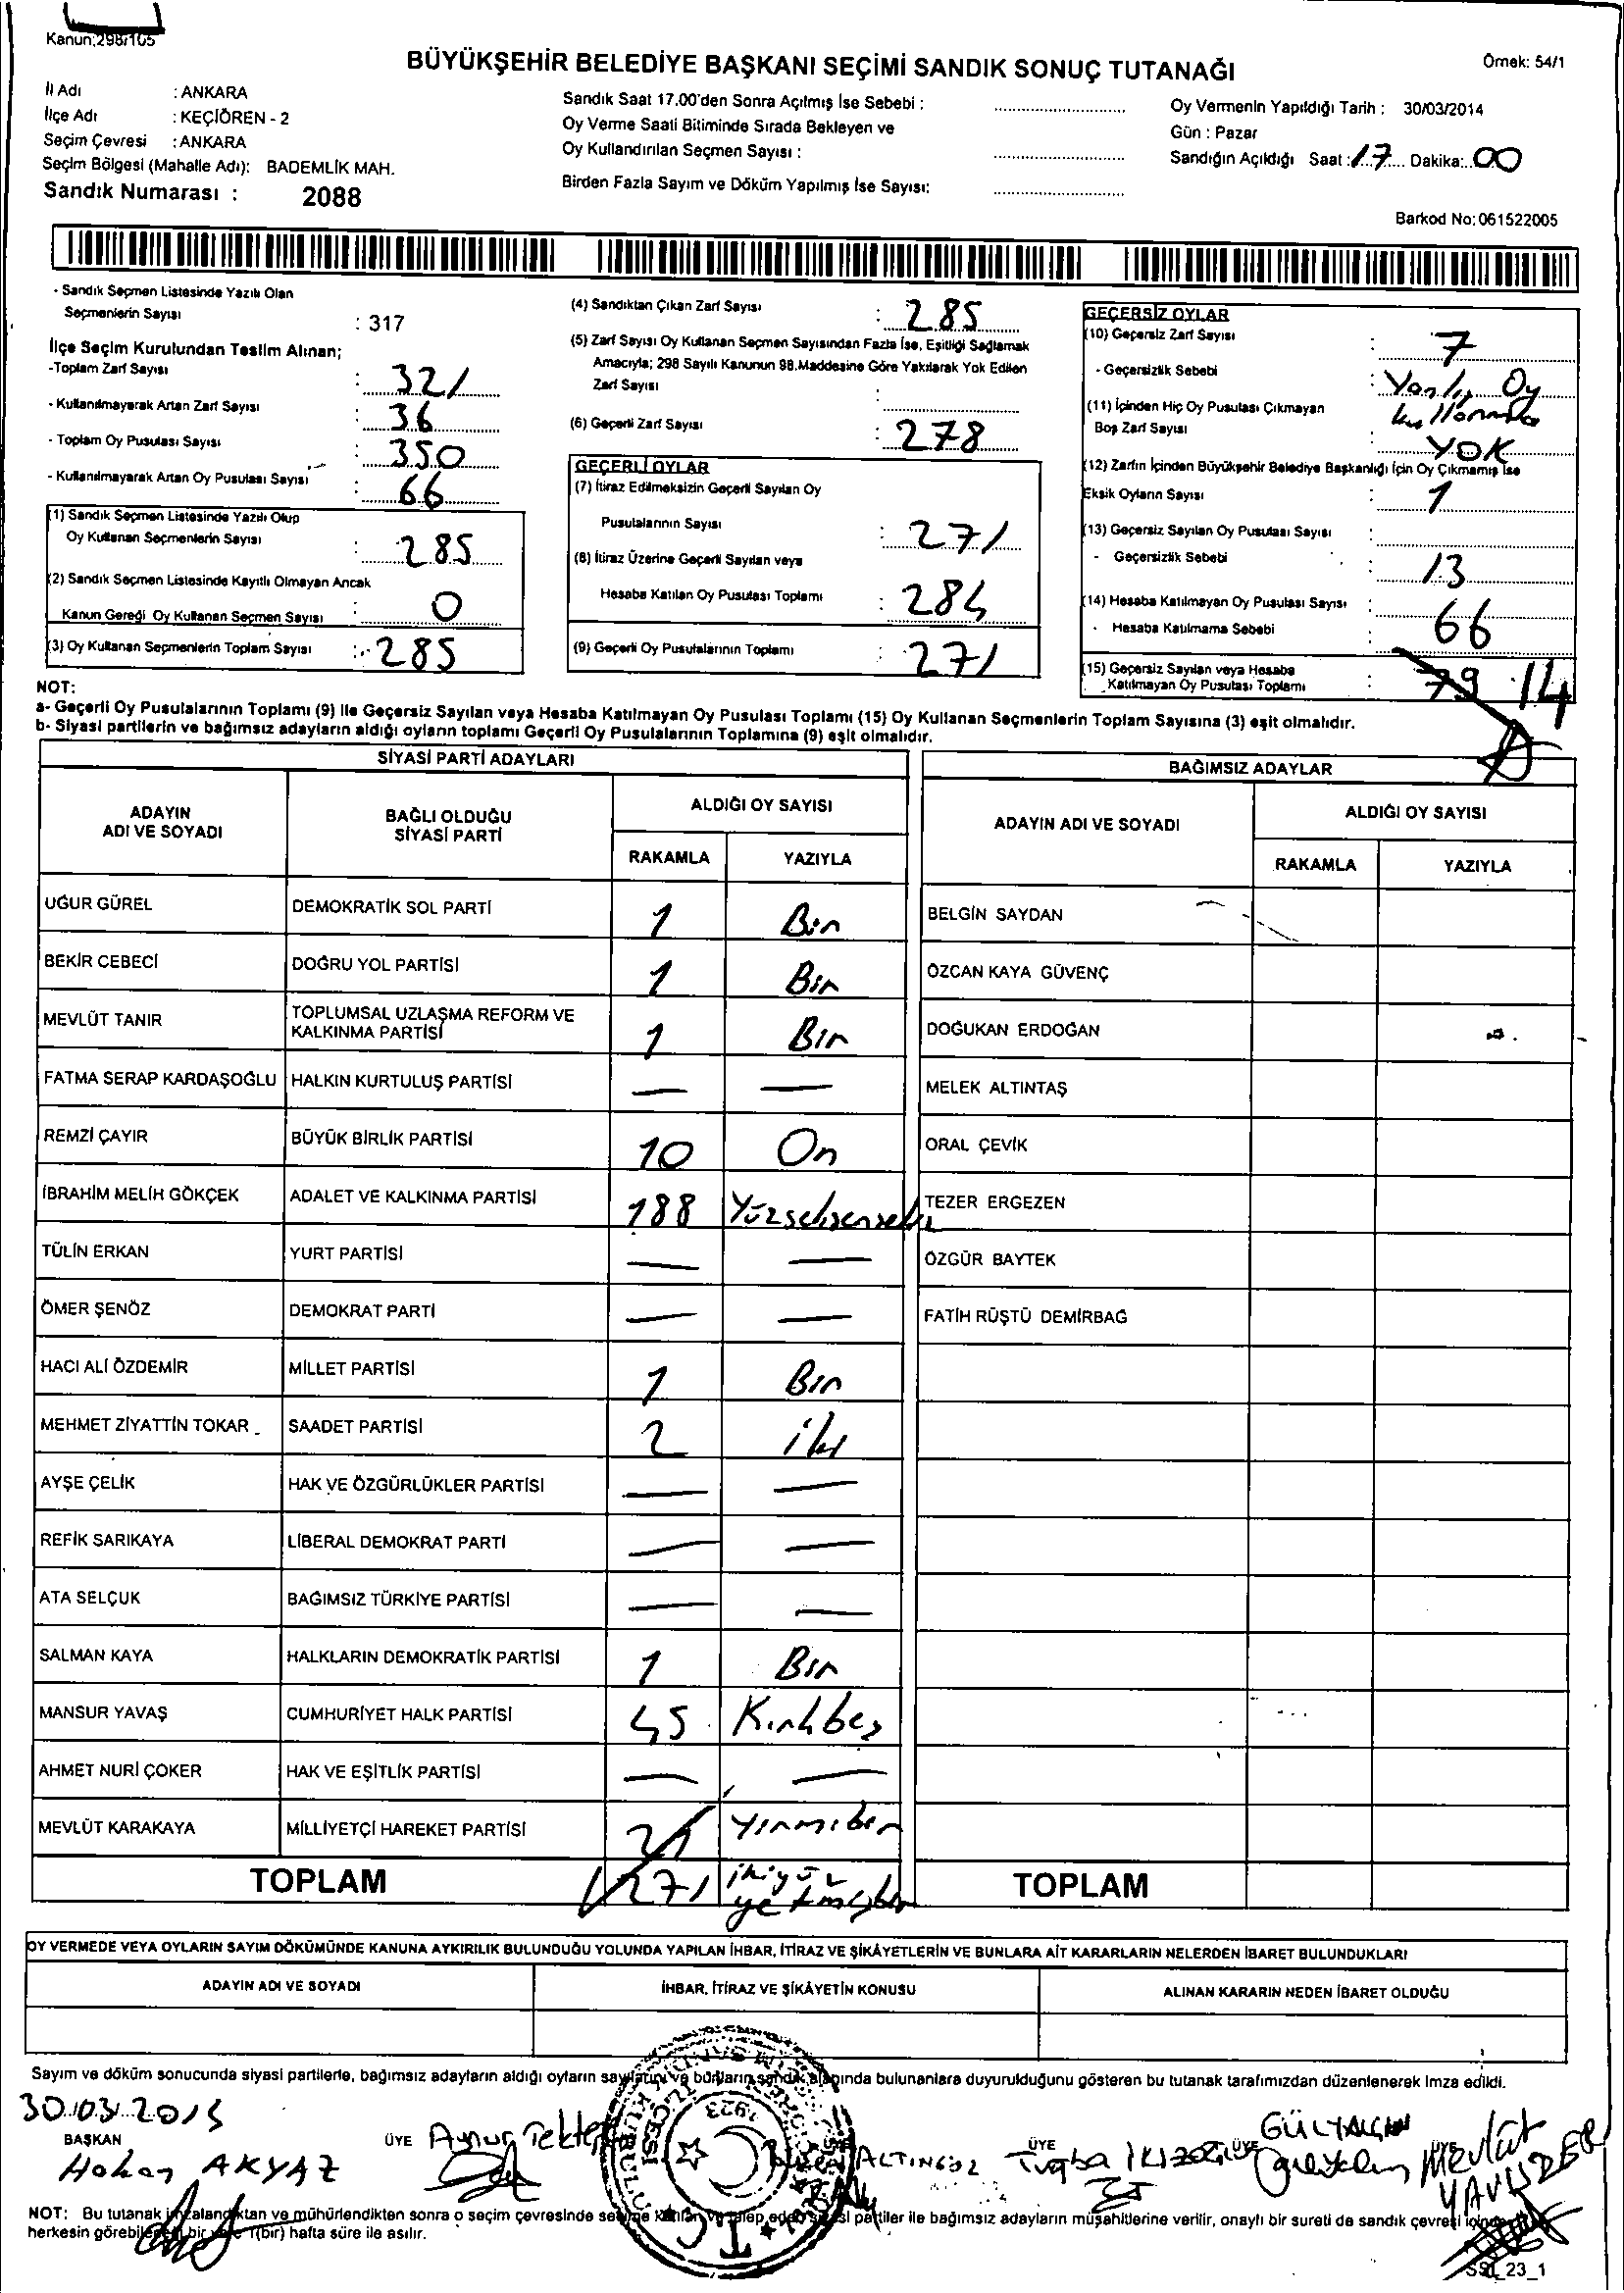 Kanun;298/105
BÜYÜKŞEHİR BELEDİYE BAŞKANI SEÇİMİ SANDIK SONUÇ TUTANAĞI
Örnek: 54/1
İl Adı : ANKARA
İlçe Adı : KEÇİÖREN - 2
Seçim Çevresi : ANKARA
Seçim Bölgesi (Mahalle Adı): BADEMLİK MAH.
Sandık Numarası : 2088
Sandık Saat 17.00'den Sonra Açılmış İse Sebebi :
Oy Verme Saati Bitiminde Sırada Bekleyen ve
Oy Kullandırılan Seçmen Sayısı :
Birden Fazla Sayım ve Döküm Yapılmış İse Sayısı:
Oy Vermenin Yapıldığı Tarih : 30/03/2014
Gün : Pazar
Sandığın Açıldığı Saat : 17 Dakika: 00
Barkod No: 061522005
- Sandık Seçmen Listesinde Yazılı Olan
Seçmenlerin Sayısı : 317
İlçe Seçim Kurulundan Teslim Alınan;
-Toplam Zarf Sayısı : 321
- Kullanılmayarak Artan Zarf Sayısı : 36
- Toplam Oy Pusulası Sayısı : 350
- Kullanılmayarak Artan Oy Pusulası Sayısı : 66
(1) Sandık Seçmen Listesinde Yazılı Olup
Oy Kullanan Seçmenlerin Sayısı : 285
(2) Sandık Seçmen Listesinde Kayıtlı Olmayan Ancak
Kanun Gereği Oy Kullanan Seçmen Sayısı : 0
(3) Oy Kullanan Seçmenlerin Toplam Sayısı : 285
(4) Sandıktan Çıkan Zarf Sayısı : 285
(5) Zarf Sayısı Oy Kullanan Seçmen Sayısından Fazla İse, Eşitliği Sağlamak
Amacıyla; 298 Sayılı Kanunun 98.Maddesine Göre Yakılarak Yok Edilen
Zarf Sayısı :
(6) Geçerli Zarf Sayısı : 278
GEÇERLİ OYLAR
(7) İtiraz Edilmeksizin Geçerli Sayılan Oy
Pusulalarının Sayısı : 271
(8) İtiraz Üzerine Geçerli Sayılan veya
Hesaba Katılan Oy Pusulası Toplamı : 284
(9) Geçerli Oy Pusulalarının Toplamı : 271
GEÇERSİZ OYLAR
(10) Geçersiz Zarf Sayısı : 7
- Geçersizlik Sebebi : Yanlış Oy
(11) İçinden Hiç Oy Pusulası Çıkmayan
Boş Zarf Sayısı : YOK
(12) Zarfın İçinden Büyükşehir Belediye Başkanlığı İçin Oy Çıkmamış İse
Eksik Oyların Sayısı : 1
(13) Geçersiz Sayılan Oy Pusulası Sayısı :
- Geçersizlik Sebebi : 13
(14) Hesaba Katılmayan Oy Pusulası Sayısı :
- Hesaba Katılmama Sebebi : 66
(15) Geçersiz Sayılan veya Hesaba
Katılmayan Oy Pusulası Toplamı : 79 14
NOT:
a- Geçerli Oy Pusulalarının Toplamı (9) İle Geçersiz Sayılan veya Hesaba Katılmayan Oy Pusulası Toplamı (15) Oy Kullanan Seçmenlerin Toplam Sayısına (3) eşit olmalıdır.
b- Siyasi partilerin ve bağımsız adayların aldığı oyların toplamı Geçerli Oy Pusulalarının Toplamına (9) eşit olmalıdır.
SİYASİ PARTİ ADAYLARI
BAĞIMSIZ ADAYLAR
ADAYIN ADI VE SOYADI
BAĞLI OLDUĞU SİYASİ PARTİ
ALDIĞI OY SAYISI
RAKAMLA YAZIYLA
ADAYIN ADI VE SOYADI
ALDIĞI OY SAYISI
RAKAMLA YAZIYLA
UĞUR GÜREL DEMOKRATİK SOL PARTİ 1 Bir BELGİN SAYDAN
BEKİR CEBECİ DOĞRU YOL PARTİSİ 1 Bir ÖZCAN KAYA GÜVENÇ
MEVLÜT TANIR TOPLUMSAL UZLAŞMA REFORM VE KALKINMA PARTİSİ 1 Bir DOĞUKAN ERDOĞAN
FATMA SERAP KARDAŞOĞLU HALKIN KURTULUŞ PARTİSİ — — MELEK ALTINTAŞ
REMZİ ÇAYIR BÜYÜK BİRLİK PARTİSİ 10 On ORAL ÇEVİK
İBRAHİM MELİH GÖKÇEK ADALET VE KALKINMA PARTİSİ 188 Yüzseksensekiz TEZER ERGEZEN
TÜLİN ERKAN YURT PARTİSİ — — ÖZGÜR BAYTEK
ÖMER ŞENÖZ DEMOKRAT PARTİ — — FATİH RÜŞTÜ DEMİRBAĞ
HACI ALİ ÖZDEMİR MİLLET PARTİSİ 1 Bir
MEHMET ZİYATTİN TOKAR SAADET PARTİSİ 2 iki
AYŞE ÇELİK HAK VE ÖZGÜRLÜKLER PARTİSİ — —
REFİK SARIKAYA LİBERAL DEMOKRAT PARTİ — —
ATA SELÇUK BAĞIMSIZ TÜRKİYE PARTİSİ — —
SALMAN KAYA HALKLARIN DEMOKRATİK PARTİSİ 1 Bir
MANSUR YAVAŞ CUMHURİYET HALK PARTİSİ 45 Kırkbeş
AHMET NURİ ÇOKER HAK VE EŞİTLİK PARTİSİ — —
MEVLÜT KARAKAYA MİLLİYETÇİ HAREKET PARTİSİ 21 Yirmibir
TOPLAM 271 ikiyüz yetmişbir TOPLAM
OY VERMEDE VEYA OYLARIN SAYIM DÖKÜMÜNDE KANUNA AYKIRILIK BULUNDUĞU YOLUNDA YAPILAN İHBAR, İTİRAZ VE ŞİKÂYETLERİN VE BUNLARA AİT KARARLARIN NELERDEN İBARET BULUNDUKLARI
ADAYIN ADI VE SOYADI İHBAR, İTİRAZ VE ŞİKÂYETİN KONUSU ALINAN KARARIN NEDEN İBARET OLDUĞU
Sayım ve döküm sonucunda siyasi partilerle, bağımsız adayların aldığı oyların sayılarını ve bunların sandık alanında bulunanlara duyurulduğunu gösteren bu tutanak tarafımızdan düzenlenerek imza edildi.
30.03.2014
BAŞKAN ÜYE ÜYE ÜYE
Hakan AKYAZ Aynur ALTINGÖZ Tuğba GÜLYALÇIN Mevlüt
NOT: Bu tutanak imzalandıktan ve mühürlendikten sonra o seçim çevresinde seçime katılan ve talep eden siyasi partiler ile bağımsız adayların müşahitlerine verilir, onaylı bir sureti de sandık çevresi içinde
herkesin görebileceği bir yere 1(bir) hafta süre ile asılır.
1923
T.C.
23_1